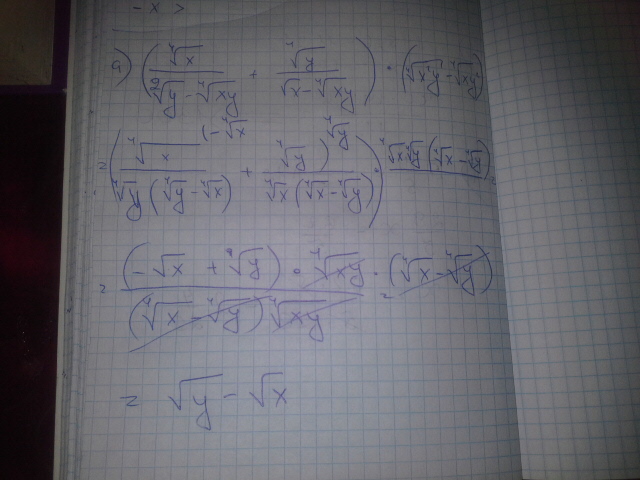 - x >
( ⁴√x / (√y - ⁴√xy) + ⁴√y / (√x - ⁴√xy) ) · (⁴√x²y - ⁴√xy²)
= ( ⁴√x (-⁴√x / ⁴√y (⁴√y - ⁴√x) + ⁴√y ) ⁴√y / ⁴√x (⁴√x - ⁴√y) ) · ⁴√x ⁴√y (⁴√x - ⁴√y) =
= (-√x + √y) · ⁴√xy · (⁴√x - ⁴√y) / (⁴√x - ⁴√y) ⁴√xy =
= √y - √x